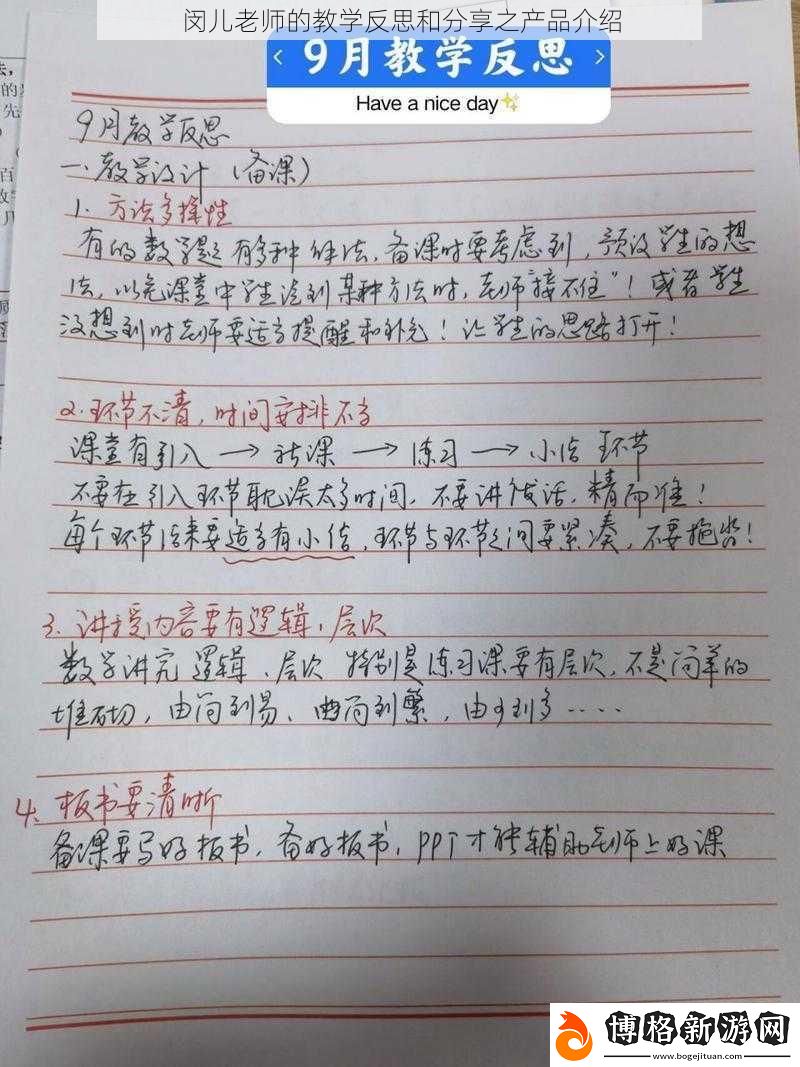 闵儿老师的教学反思和分享之产品介绍
9月教学反思
Have a nice day✨
9月教学反思
一.教学设计（备课）
1. 方法多样性
有的数学题有多种解法,备课时要考虑到,预设学生的想
法,以免课堂中学生说到某种方法时,老师"接不住"！或者学生
没想到时老师要适当提醒和补充！让学生的思路打开！
2.环节不清,时间安排不当
课堂有引入 → 新课 → 练习 → 小结 环节
不要在引入环节耽误太多时间,不要讲废话,精而准！
每个环节结束要适当有小结,环节与环节之间要紧凑,不要拖沓！
3. 讲授内容要有逻辑、层次
数学讲究 逻辑、层次 特别是练习课要有层次,不是简单的
堆砌,由简到易、由简到繁,由少到多·····
4. 板书要清晰
备课要写好板书,备好板书,PPT才能辅助老师上好课
博格新游网
www.bogejituan.com